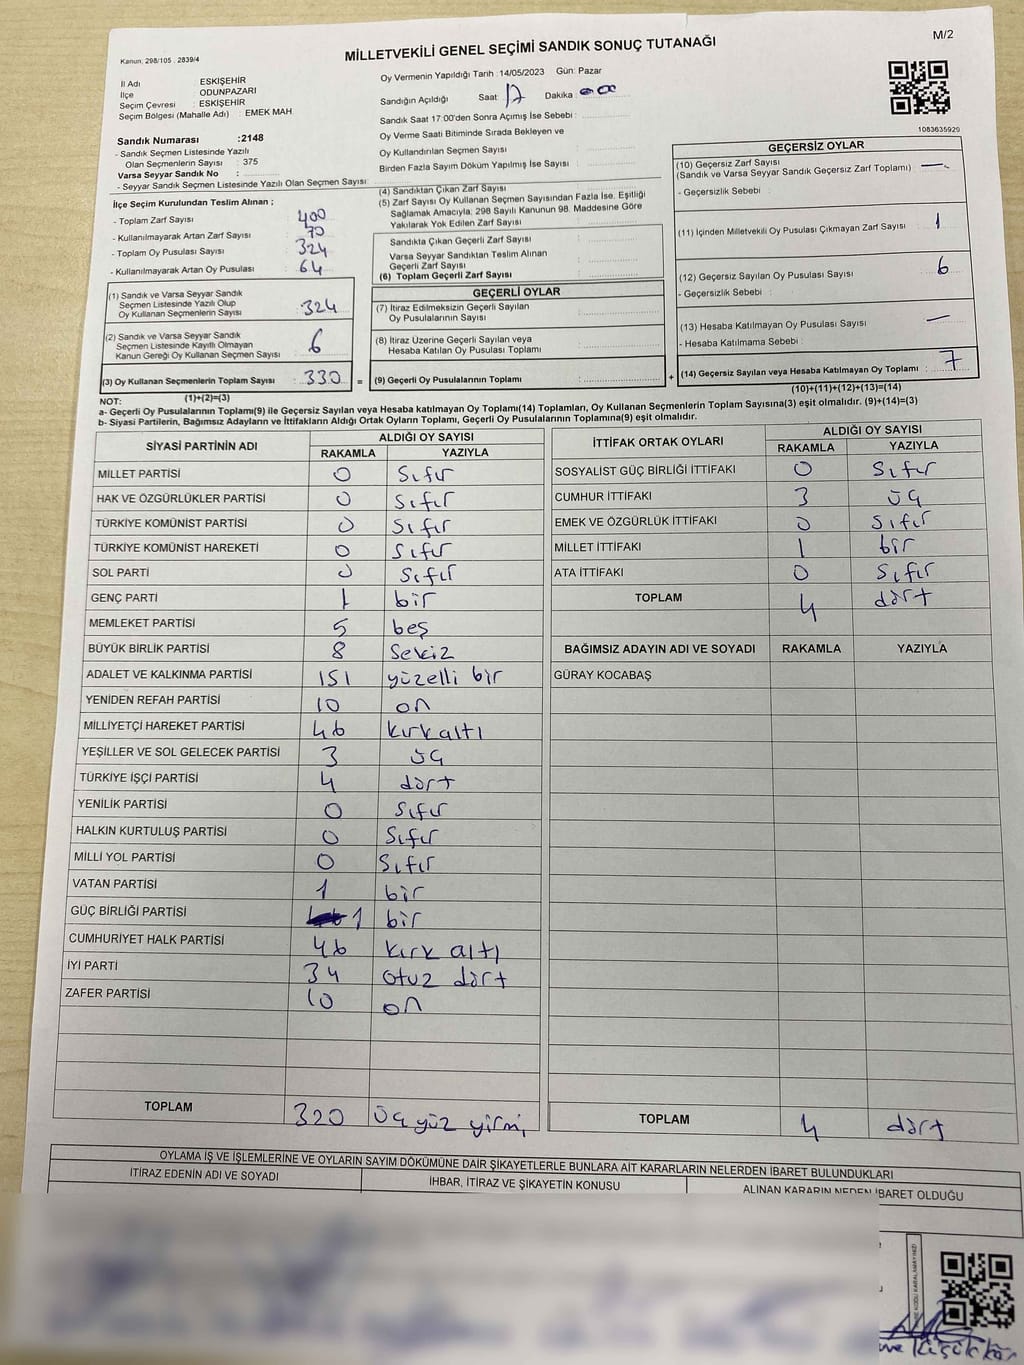 MİLLETVEKİLİ GENEL SEÇİMİ SANDIK SONUÇ TUTANAĞI
M/2
Kanun, 298/105 . 2839/4
İl Adı ESKİŞEHİR
İlçe ODUNPAZARI
Seçim Çevresi : ESKİŞEHİR
Seçim Bölgesi (Mahalle Adı) : EMEK MAH
Sandık Numarası :2148
- Sandık Seçmen Listesinde Yazılı
Olan Seçmenlerin Sayısı : 375
Varsa Seyyar Sandık No :
- Seyyar Sandık Seçmen Listesinde Yazılı Olan Seçmen Sayısı
İlçe Seçim Kurulundan Teslim Alınan ;
- Toplam Zarf Sayısı : 400
- Kullanılmayarak Artan Zarf Sayısı : 70
- Toplam Oy Pusulası Sayısı : 324
- Kullanılmayarak Artan Oy Pusulası : 64
(1) Sandık ve Varsa Seyyar Sandık
Seçmen Listesinde Yazılı Olup
Oy Kullanan Seçmenlerin Sayısı : 324
(2) Sandık ve Varsa Seyyar Sandık
Seçmen Listesinde Kayıtlı Olmayan
Kanun Gereği Oy Kullanan Seçmen Sayısı : 6
(3) Oy Kullanan Seçmenlerin Toplam Sayısı : 330 =
(1)+(2)=(3)
Oy Vermenin Yapıldığı Tarih :14/05/2023 Gün: Pazar
Sandığın Açıldığı Saat: 17 Dakika : 00
Sandık Saat 17:00'den Sonra Açılmış İse Sebebi :
Oy Verme Saati Bitiminde Sırada Bekleyen ve
Oy Kullandırılan Seçmen Sayısı :
Birden Fazla Sayım Döküm Yapılmış İse Sayısı :
(4) Sandıktan Çıkan Zarf Sayısı :
(5) Zarf Sayısı Oy Kullanan Seçmen Sayısından Fazla İse, Eşitliği
Sağlamak Amacıyla; 298 Sayılı Kanunun 98. Maddesine Göre
Yakılarak Yok Edilen Zarf Sayısı :
Sandıkta Çıkan Geçerli Zarf Sayısı :
Varsa Seyyar Sandıktan Teslim Alınan
Geçerli Zarf Sayısı :
(6) Toplam Geçerli Zarf Sayısı :
GEÇERLİ OYLAR
(7) İtiraz Edilmeksizin Geçerli Sayılan
Oy Pusulalarının Sayısı :
(8) İtiraz Üzerine Geçerli Sayılan veya
Hesaba Katılan Oy Pusulası Toplamı :
(9) Geçerli Oy Pusulalarının Toplamı : +
1083635929
GEÇERSİZ OYLAR
(10) Geçersiz Zarf Sayısı : —
(Sandık ve Varsa Seyyar Sandık Geçersiz Zarf Toplamı)
- Geçersizlik Sebebi :
(11) İçinden Milletvekili Oy Pusulası Çıkmayan Zarf Sayısı : 1
(12) Geçersiz Sayılan Oy Pusulası Sayısı : 6
- Geçersizlik Sebebi :
(13) Hesaba Katılmayan Oy Pusulası Sayısı : —
- Hesaba Katılmama Sebebi :
(14) Geçersiz Sayılan veya Hesaba Katılmayan Oy Toplamı : 7
(10)+(11)+(12)+(13)=(14)
NOT:
a- Geçerli Oy Pusulalarının Toplamı(9) ile Geçersiz Sayılan veya Hesaba katılmayan Oy Toplamı(14) Toplamları, Oy Kullanan Seçmenlerin Toplam Sayısına(3) eşit olmalıdır. (9)+(14)=(3)
b- Siyasi Partilerin, Bağımsız Adayların ve İttifakların Aldığı Ortak Oyların Toplamı, Geçerli Oy Pusulalarının Toplamına(9) eşit olmalıdır.
SİYASİ PARTİNİN ADI ALDIĞI OY SAYISI
RAKAMLA YAZIYLA
MİLLET PARTİSİ 0 sıfır
HAK VE ÖZGÜRLÜKLER PARTİSİ 0 sıfır
TÜRKİYE KOMÜNİST PARTİSİ 0 sıfır
TÜRKİYE KOMÜNİST HAREKETİ 0 sıfır
SOL PARTİ 0 sıfır
GENÇ PARTİ 1 bir
MEMLEKET PARTİSİ 5 beş
BÜYÜK BİRLİK PARTİSİ 8 sekiz
ADALET VE KALKINMA PARTİSİ 151 yüzelli bir
YENİDEN REFAH PARTİSİ 10 on
MİLLİYETÇİ HAREKET PARTİSİ 46 kırkaltı
YEŞİLLER VE SOL GELECEK PARTİSİ 3 üç
TÜRKİYE İŞÇİ PARTİSİ 4 dört
YENİLİK PARTİSİ 0 sıfır
HALKIN KURTULUŞ PARTİSİ 0 sıfır
MİLLİ YOL PARTİSİ 0 sıfır
VATAN PARTİSİ 1 bir
GÜÇ BİRLİĞİ PARTİSİ 1 bir
CUMHURİYET HALK PARTİSİ 46 kırk altı
İYİ PARTİ 34 otuz dört
ZAFER PARTİSİ 10 on
TOPLAM 320 üç yüz yirmi
İTTİFAK ORTAK OYLARI ALDIĞI OY SAYISI
RAKAMLA YAZIYLA
SOSYALİST GÜÇ BİRLİĞİ İTTİFAKI 0 sıfır
CUMHUR İTTİFAKI 3 üç
EMEK VE ÖZGÜRLÜK İTTİFAKI 0 sıfır
MİLLET İTTİFAKI 1 bir
ATA İTTİFAKI 0 sıfır
TOPLAM 4 dört
BAĞIMSIZ ADAYIN ADI VE SOYADI RAKAMLA YAZIYLA
GÜRAY KOCABAŞ
TOPLAM 4 dört
OYLAMA İŞ VE İŞLEMLERİNE VE OYLARIN SAYIM DÖKÜMÜNE DAİR ŞİKAYETLERLE BUNLARA AİT KARARLARIN NELERDEN İBARET BULUNDUKLARI
İTİRAZ EDENİN ADI VE SOYADI İHBAR, İTİRAZ VE ŞİKAYETİN KONUSU ALINAN KARARIN NEDEN İBARET OLDUĞU